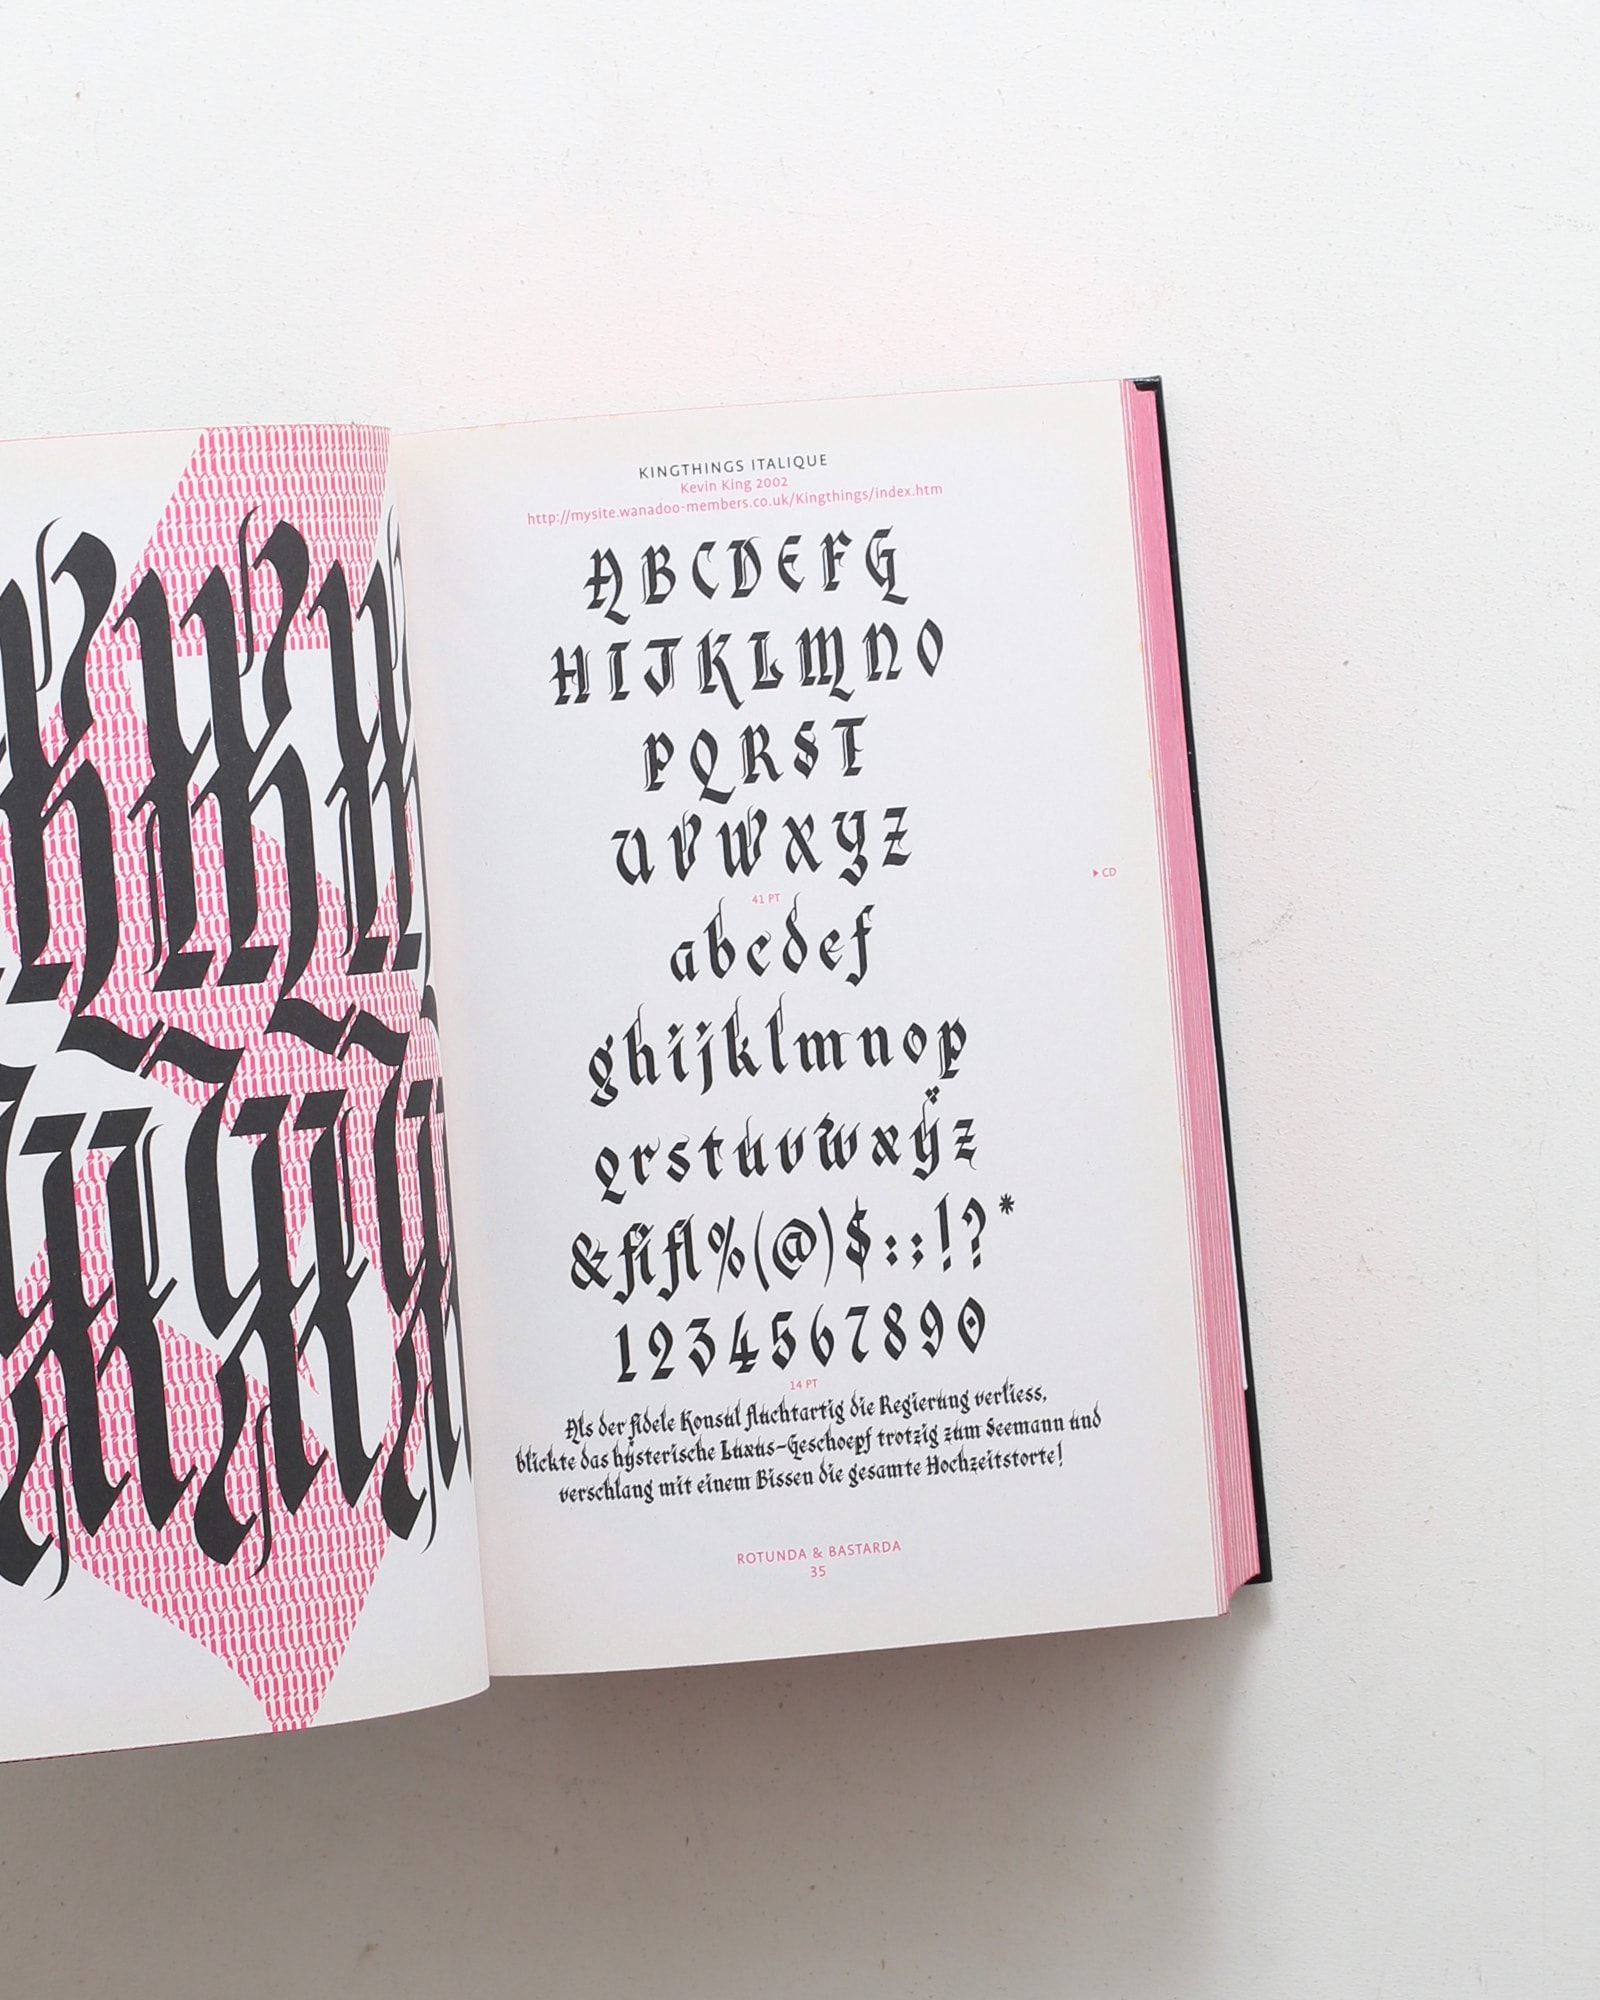 KINGTHINGS ITALIQUE
Kevin King 2002
http://mysite.wanadoo-members.co.uk/Kingthings/index.htm
ABCDEFG
HIJKLMNO
PQRST
UVWXYZ
41 PT
abcdef
ghijklmnop
qrstuvwxÿz
&fifl%(@)$:;!?*
1234567890
14 PT
Als der fidele Konsul fluchtartig die Regierung verliess,
blickte das hÿsterische Luxus-Geschoepf trotzig zum Seemann und
verschlang mit einem Bissen die gesamte Hochzeitstorte!
▸ CD
ROTUNDA & BASTARDA
35